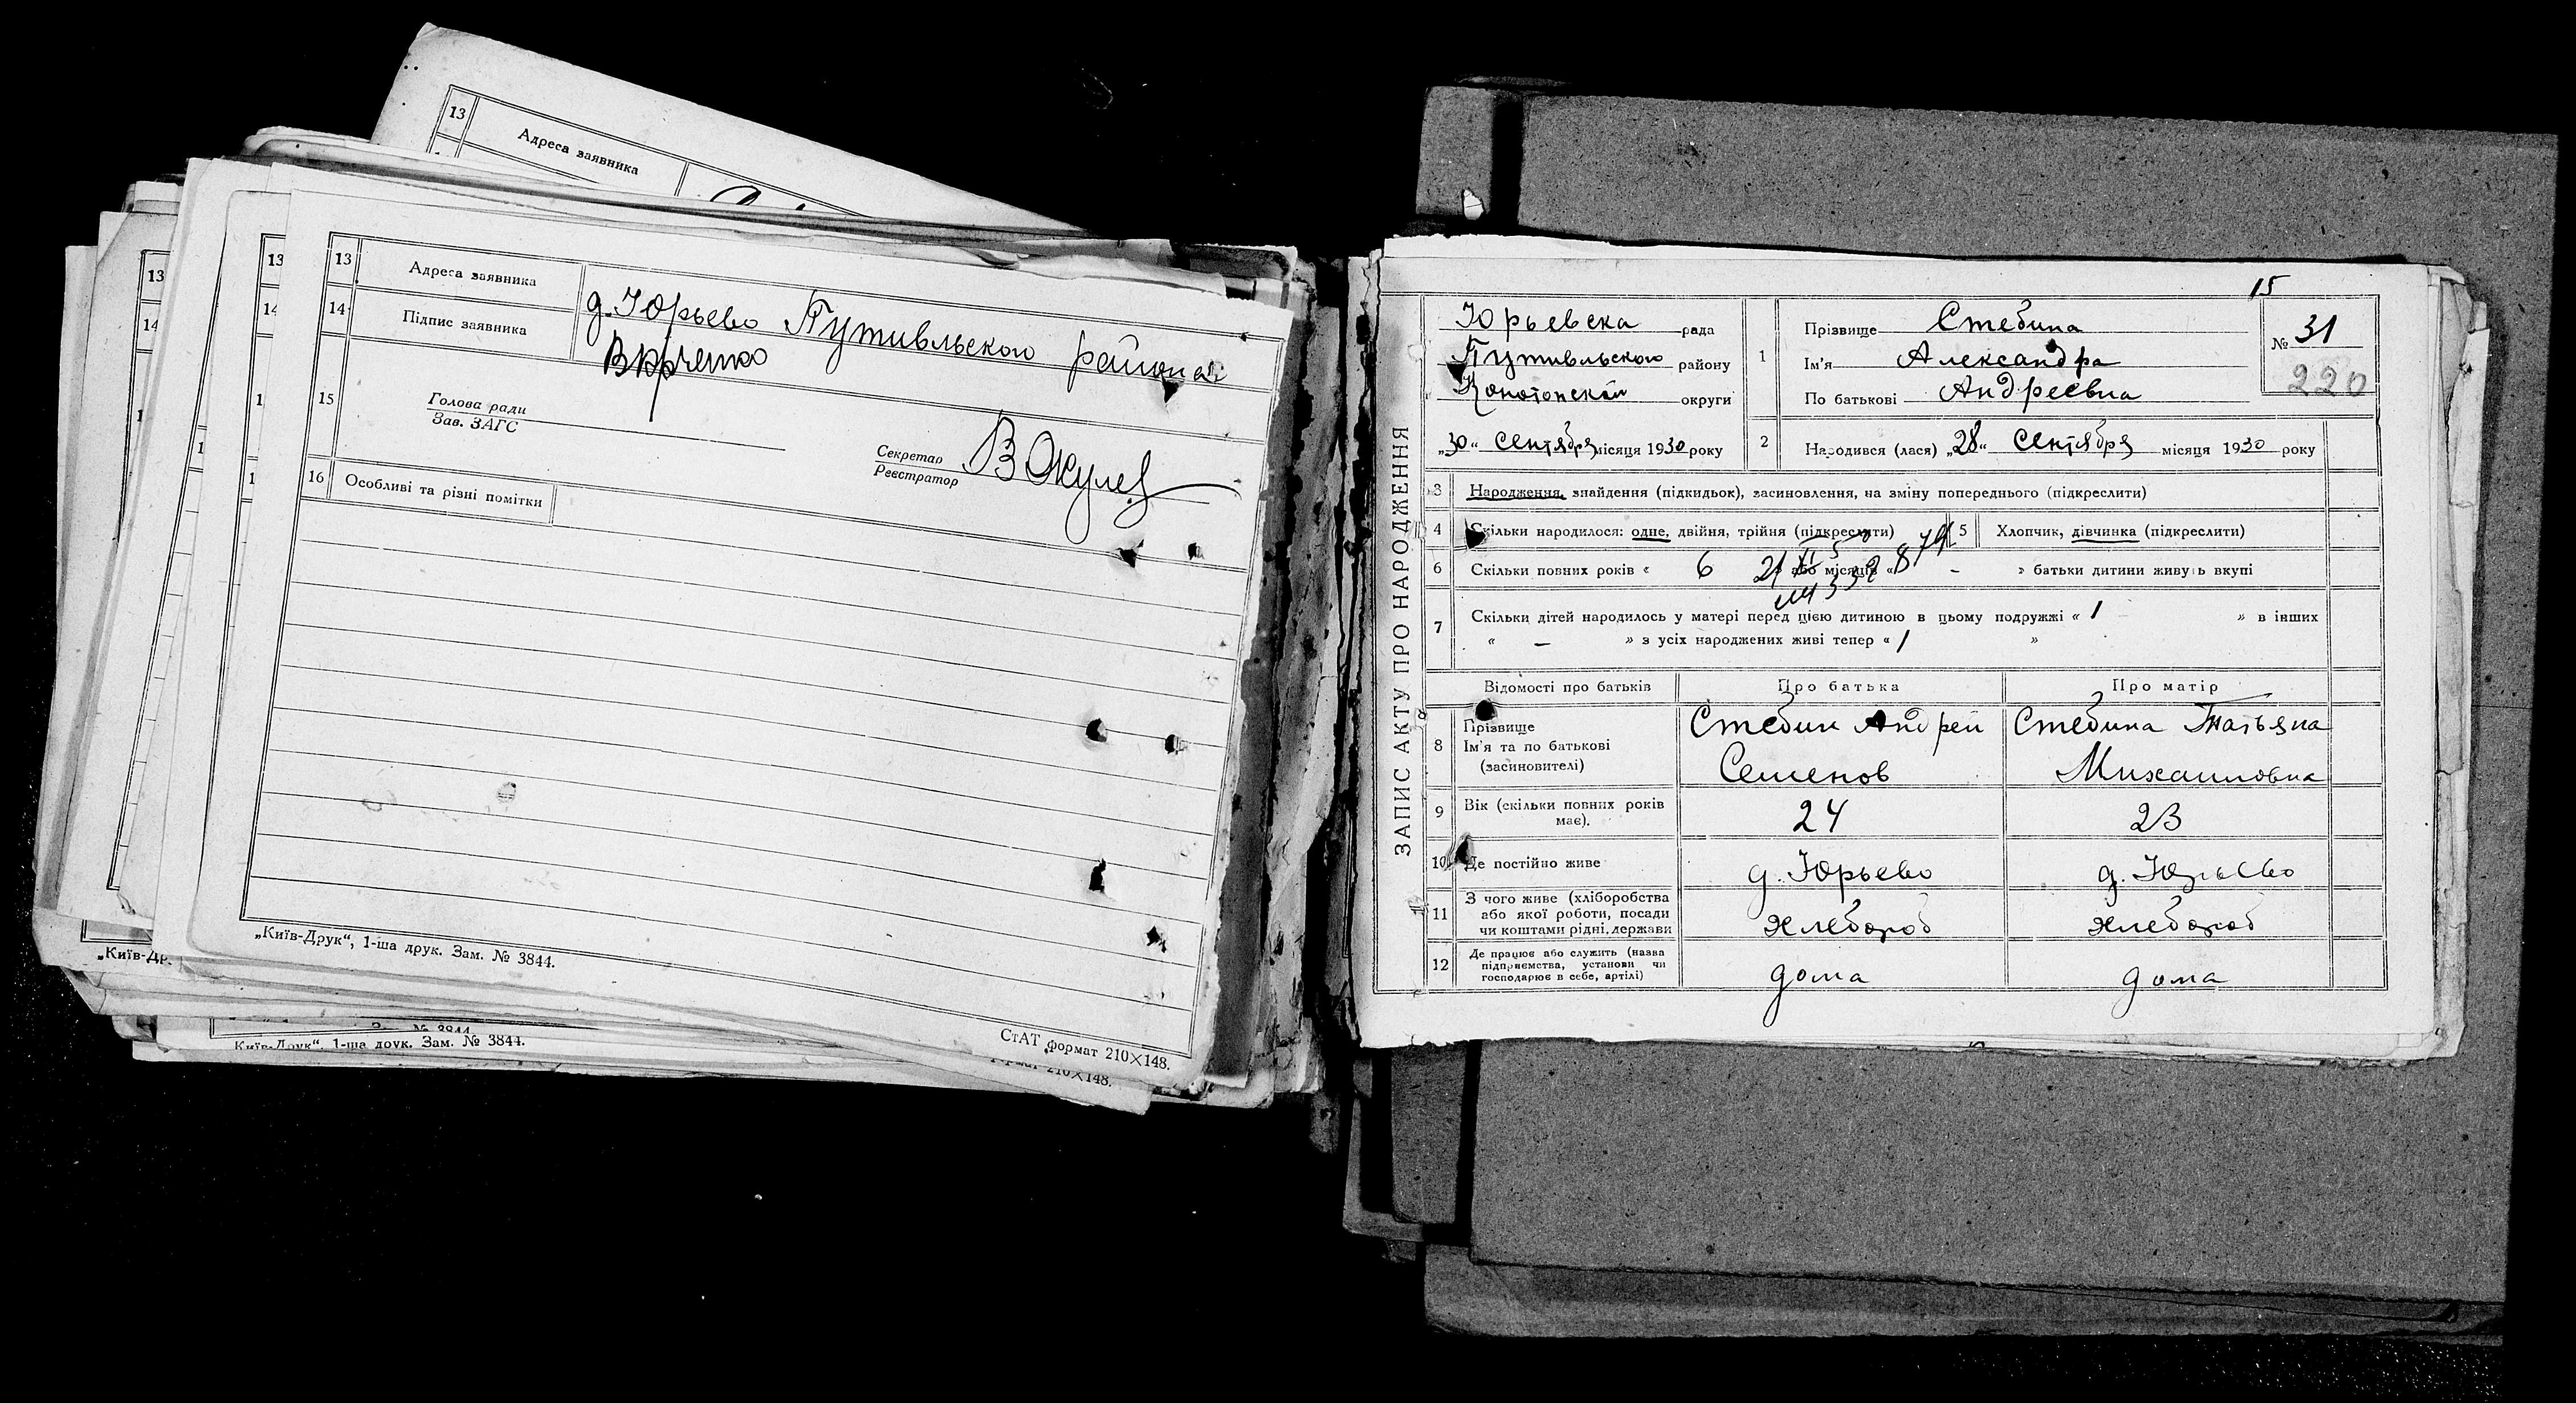 13 Адреса заявника
13 Адреса заявника д. Юрьево Путивльского района
14 Підпис заявника
15 Голова ради
Зав. ЗАГС
Секретар
Реєстратор В Окулов
16 Особливі та різні помітки
„Київ-Друк“, 1-ша друк. Зам. № 3844.
СтАТ формат 210×148.
„Київ-Др
Київ-Друк“, 1-ша друк. Зам. № 3844.
210×148.
15
ЗАПИС АКТУ ПРО НАРОДЖЕННЯ
Юрьевска рада
Путивльского району
Конотопской округи
„30“ Сентября місяця 1930 року
1 Прізвище Стебина
Ім'я Александра
По батькові Андреевна
№ 31
220
2 Народився (лася) „28“ Сентября місяця 1930 року
3 Народження, знайдення (підкидьок), засиновлення, на зміну попереднього (підкреслити)
4 Скільки народилося: одне, двійня, трійня (підкреслити) 5 Хлопчик, дівчинка (підкреслити)
6 Скільки повних років « 6 » або місяців « - » батьки дитини живуть вкупі
7 Скільки дітей народилось у матері перед цією дитиною в цьому подружжі « 1 - » в інших
« — » з усіх народжених живі тепер « 1 »
Відомості про батьків Про батька Про матір
8 Прізвище
Ім'я та по батькові
(засиновителі)
Стебин Андрей
Семенов
Стебина Татьяна
Михаиловна
9 Вік (скільки повних років
має). 24 23
10 Де постійно живе д. Юрьево д. Юрьево
11 З чого живе (хліборобства
або якої роботи, посади
чи коштами рідні, держави хлебороб хлебороб
12 Де працює або служить (назва
підприємства, установи чи
господарює в себе, артілі) дома дома